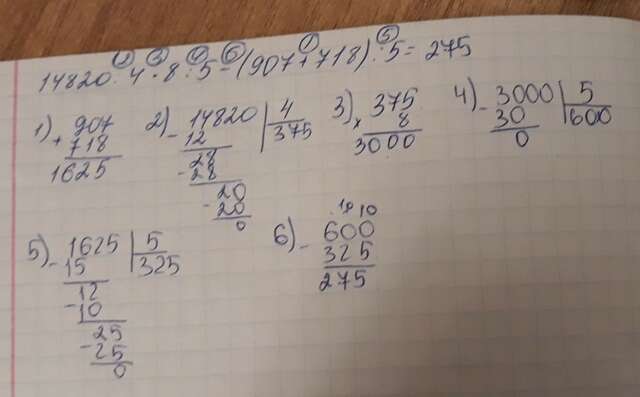 14820 : 4 · 8 : 5 - (907 + 718) : 5 = 275
2 3 4 6 1 5
1) + 907
718
1625
2) - 14820 | 4
12 | 375
28
- 28
20
- 20
0
3) × 375
8
3000
4) - 3000 | 5
30 | 600
0
5) - 1625 | 5
15 | 325
12
- 10
25
- 25
0
6) - 600
325
275